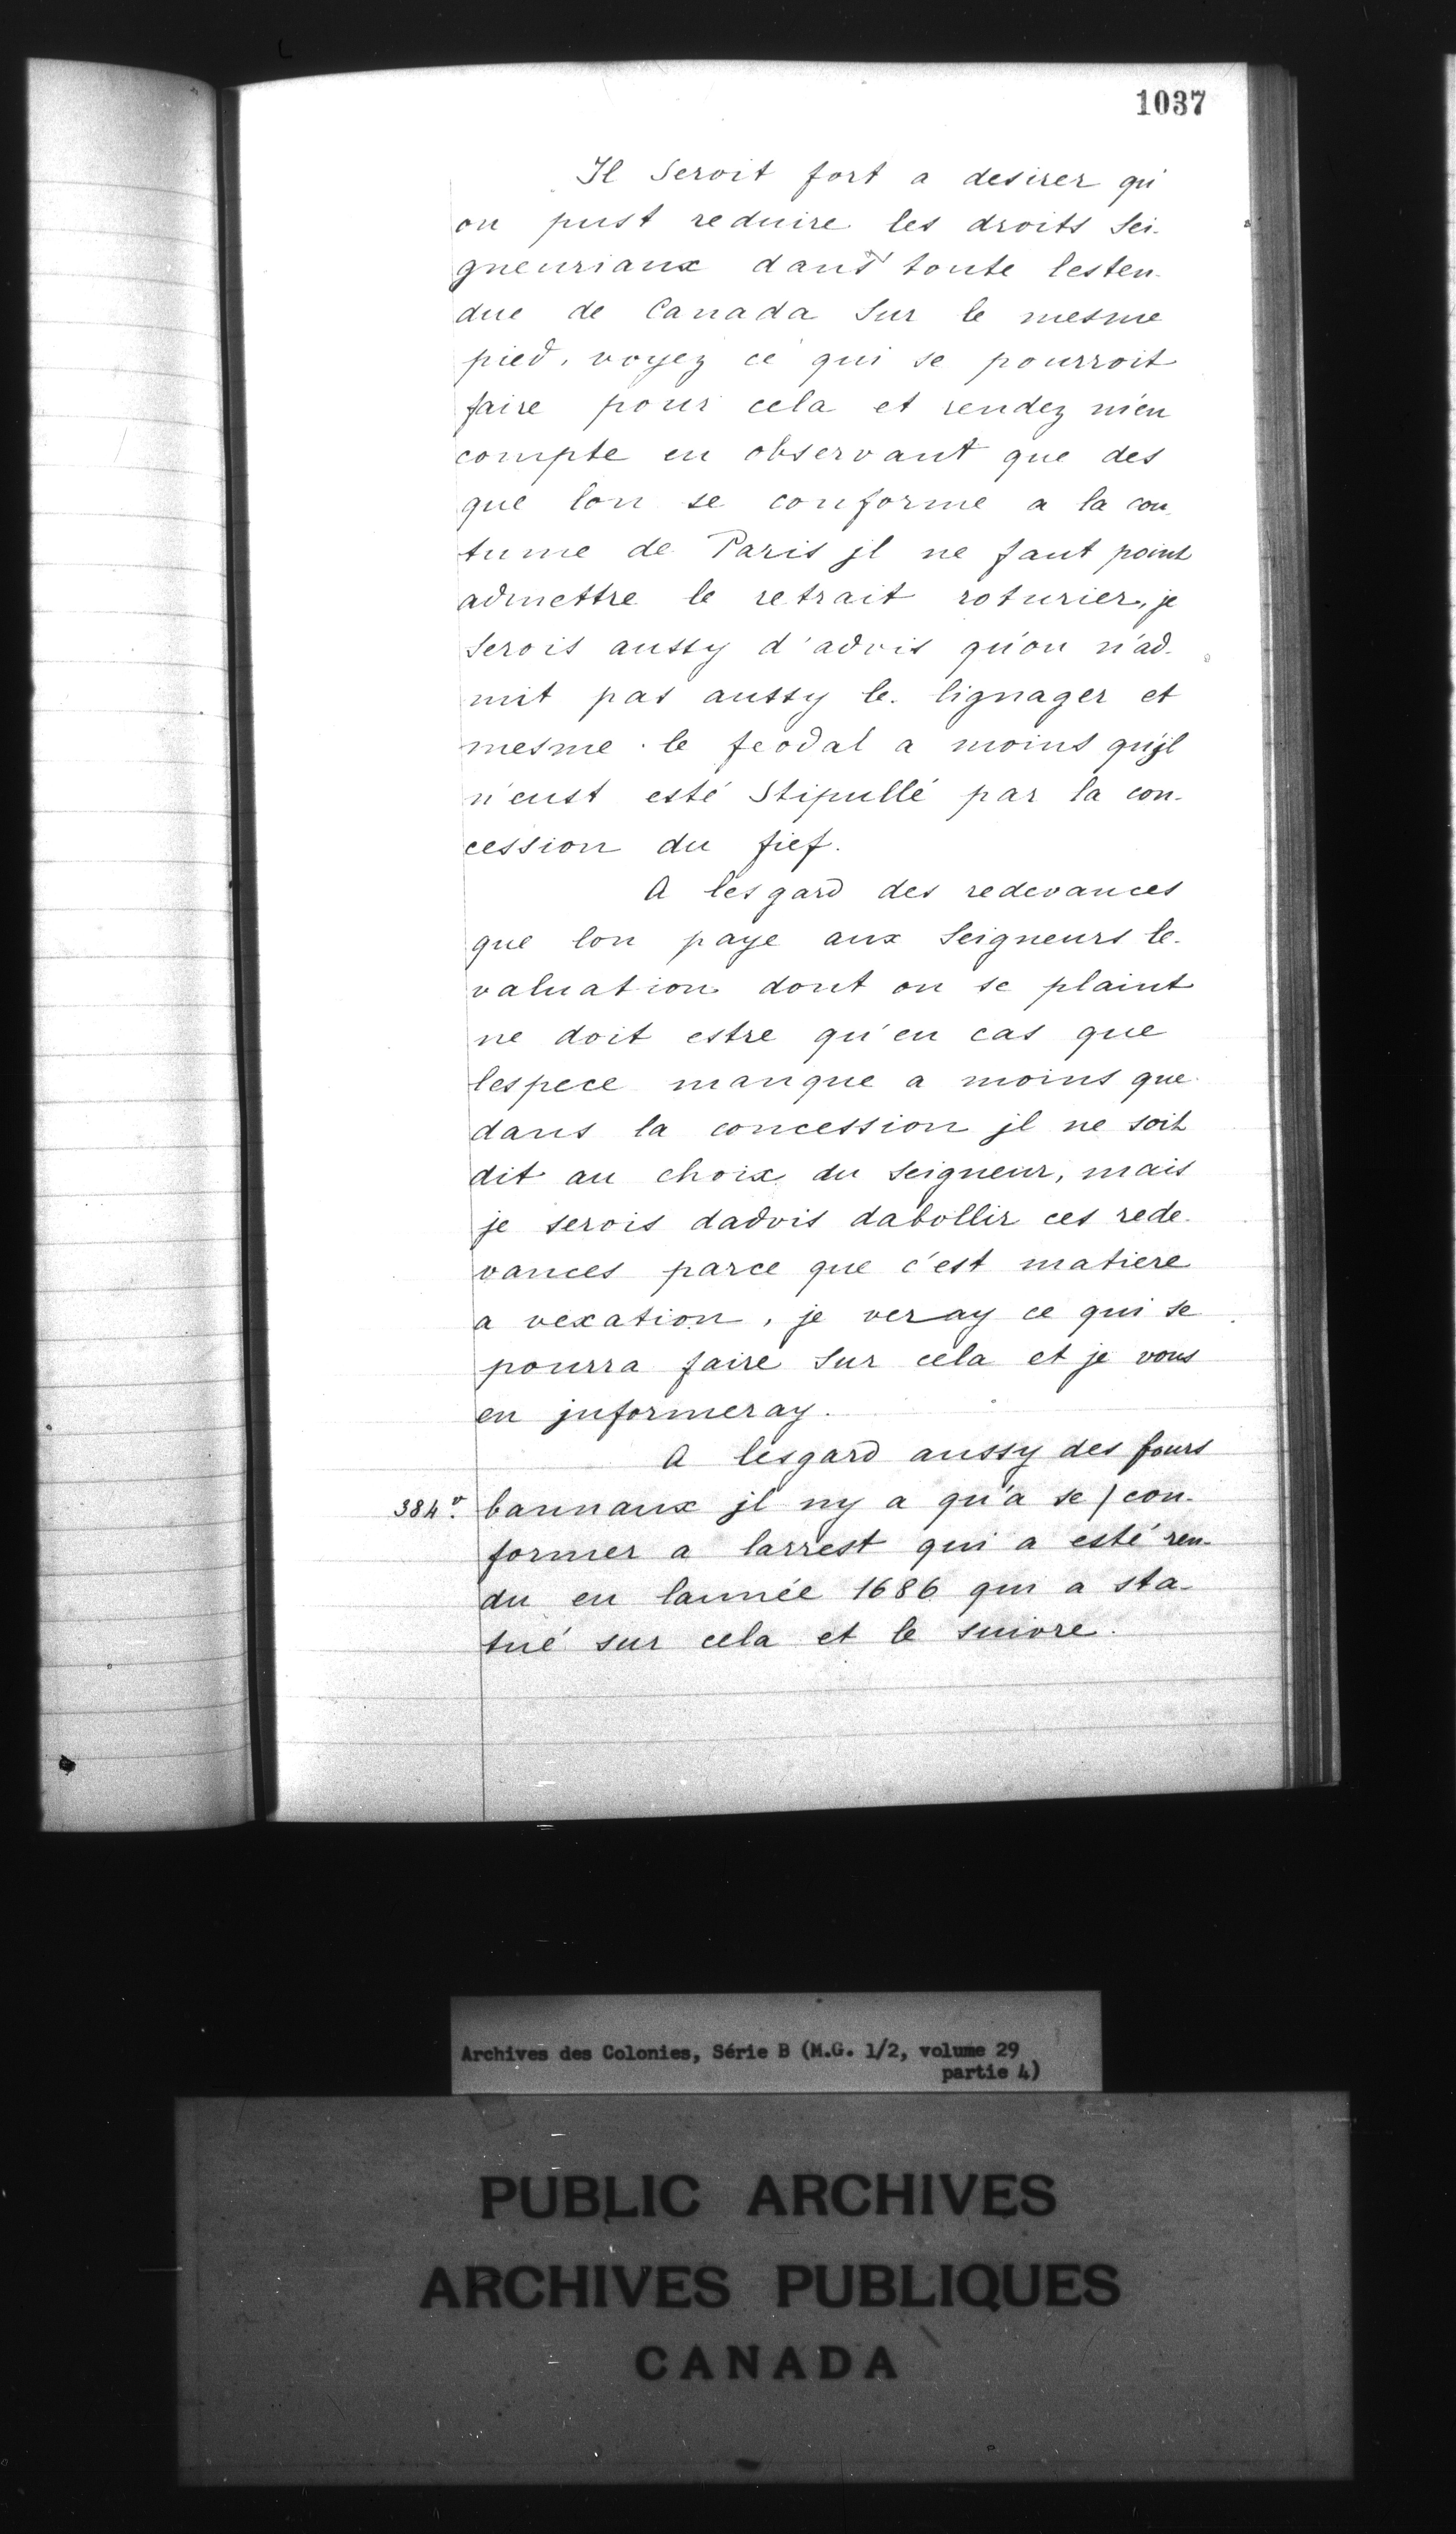 1037
Il seroit fort a desirer qu'
on pust reduire les droits sei-
gneuriaux dans toute lesten-
due de Canada sur le mesme
pied, voyez ce qui se pourroit
faire pour cela et rendez m'en
compte en observant que des
que lon se conforme a la cou-
tume de Paris jl ne faut point
admettre le retrait roturier, je
serois aussy d'advis qu'on n'ad-
mit pas aussy le lignager et
mesme le feodal a moins qu'jl
n'eust esté stipullé par la con-
cession du fief.
A lesgard des redevances
que lon paye aux seigneurs le-
valuation dont on se plaint
ne doit estre qu'en cas que
lespece manque a moins que
dans la concession jl ne soit
dit au choix du seigneur, mais
je serois dadvis dabollir ces rede-
vances parce que c'est matiere
a vexation, je veray ce qui se
pourra faire sur cela et je vous
en jnformeray.
A lesgard aussy des fours
384 v. bannaux jl ny a qu'a se / con-
former a larrest qui a esté ren-
du en lannée 1686 qui a sta-
tué sur cela et le suivre.
Archives des Colonies, Série B (M.G. 1/2, volume 29
partie 4)
PUBLIC ARCHIVES
ARCHIVES PUBLIQUES
CANADA